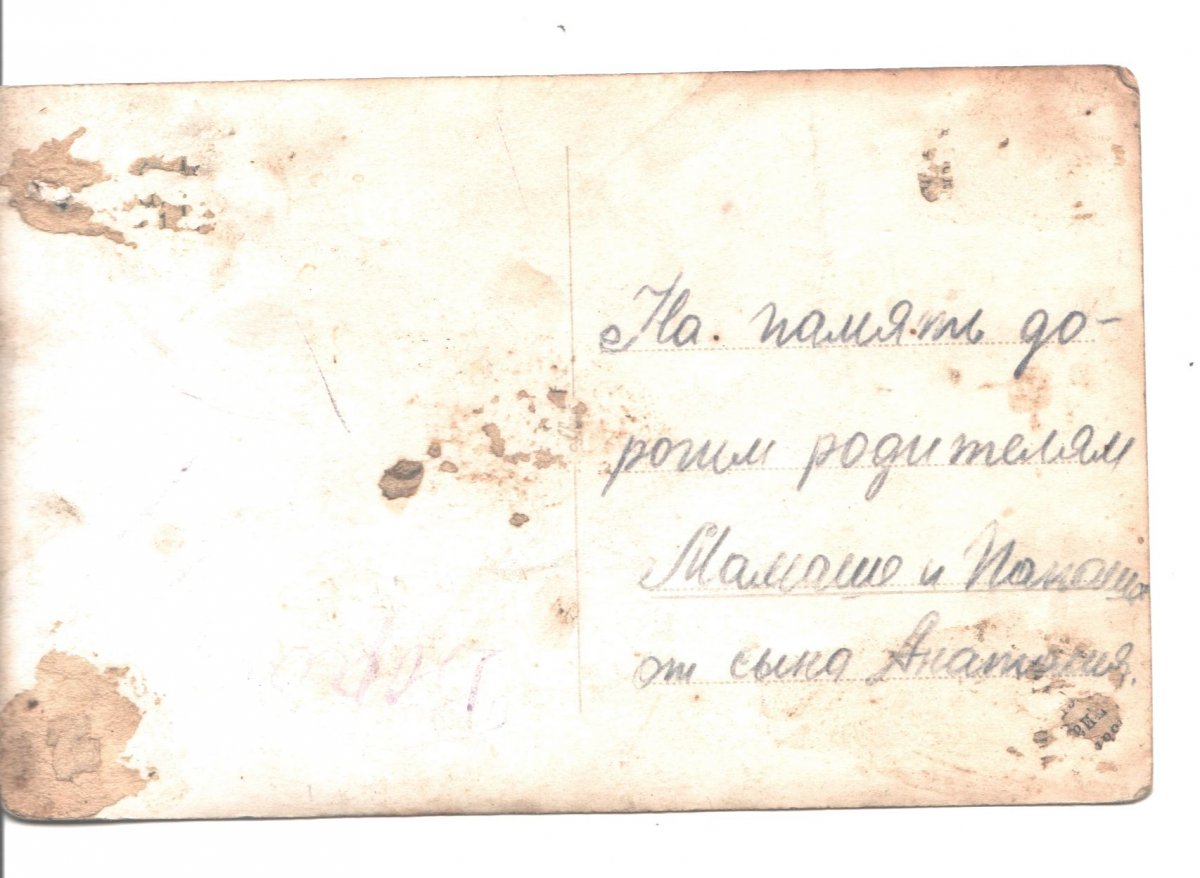 На память до-
рогим родителям
Мамаше и Папаше
от сына Анатолия.